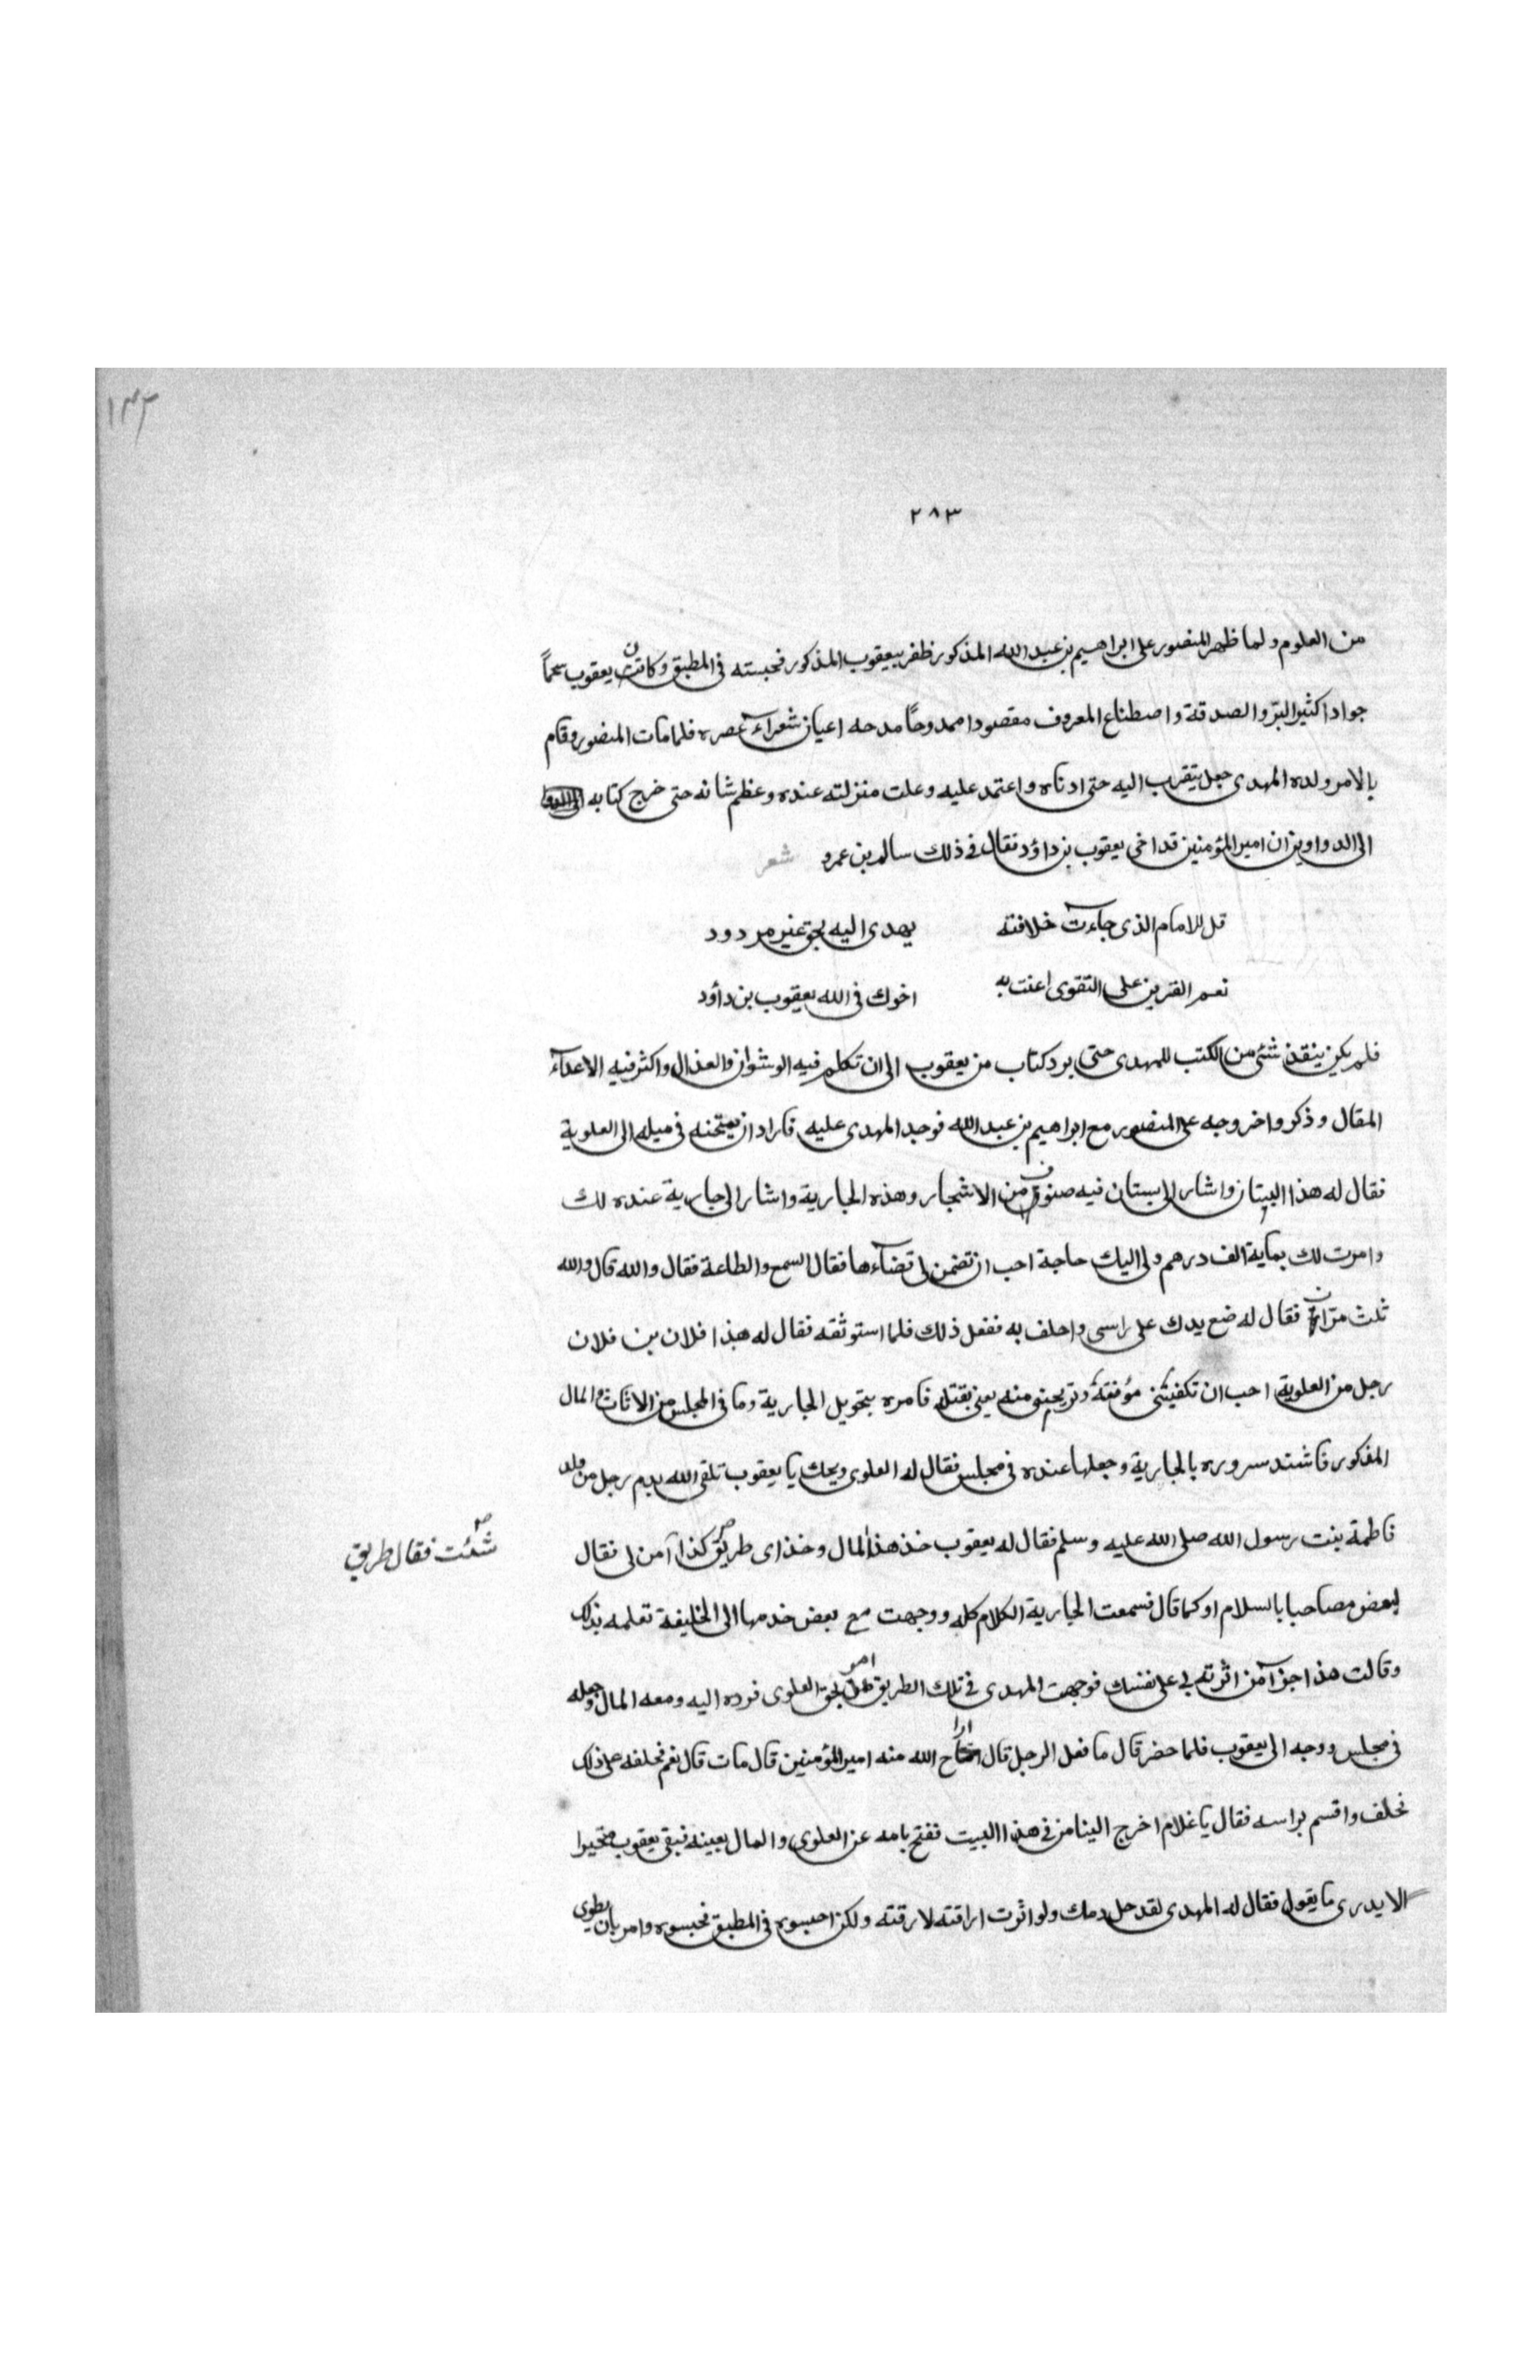 ١٤٢
٢٨٣
من العلوم ولما ظهر المنصور على ابراهيم بن عبد الله المذكور ظفر بيعقوب المذكور فحبسته فى المطبق وكان يعقوب سمحاً
جوادا كثير البرّ والصدقة واصطناع المعروف مقصودا ممدوحًا مدحه اعيان شعرآء عصره فلما مات المنصور وقام
بالامر ولده المهدى جعل يتقرب اليه حتى ادناه واعتمد عليه وعلت منزلته عنده وعظم شانه حتى خرج كتابه
الى الدواوين ان امير المؤمنين قد اخى يعقوب بن داؤد فقال فى ذلك سالم بن عمرو شعر
قل للامام الذى جاءت خلافته يهدى اليه بحق غير مردود
نعم القرين على التقوى اعنت به اخوك فى الله يعقوب بن داؤد
فلم يكن ينفذ شئ من الكتب للمهدى حتى يرد كتاب من يعقوب الى ان تكلم فيه الوشوان والعذال واكثر فيه الاعدآء
المقال وذكروا خروجه على المنصور مع ابراهيم بن عبد الله فوجد المهدى عليه فاراد ان يمتحنه فى ميله الى العلوية
فقال له هذا البستان واشار الى بستان فيه صنوف من الاشجار وهذه الجارية واشار الى جارية عنده لك
وامرت لك بماية الف درهم ولى اليك حاجة احب ان تضمن لى قضآءها فقال السمع والطاعة فقال والله قال والله
ثلث مرات فقال له ضع يدك على راسى واحلف به ففعل ذلك فلما استوثقه فقال له هذا فلان بن فلان
رجل من العلوية احب ان تكفينى مؤفقة وتريحنى منه يعنى بقتله فامره بتحويل الجارية وما فى المجلس من الاثاث والمال
المذكور فاشتد سروره بالجارية وجعلها عنده فى مجلس فقال له العلوى ويحك يا يعقوب تلقى الله بدم رجل من ولد
فاطمة بنت رسول الله صلى الله عليه وسلم فقال له يعقوب خذ هذا المال وخذ اى طريق كذا آمن لى فقال
شئت فقال طريق صح
لبعض مصاحبا بالسلام او كما قال فسمعت الجارية الكلام كله ووجهت مع بعض خدمها الى الخليفة تعلمه بذلك
وقالت هذا جزآ من اثرته بى على نفسك فوجهت المهدى فى تلك الطريق حق العلوى فرده اليه ومعه المال وجعله
فى مجلس ووجه الى يعقوب فلما حضر قال ما فعل الرجل قال اراح الله منه امير المؤمنين قال مات قال نعم فحلفه على ذلك
فحلف واقسم براسه فقال يا غلام اخرج الينا من فى هذا البيت ففتح بابه عن العلوى والمال بعينه فبقى يعقوب متحيرا
لا يدرى ما يقول فقال له المهدى لقد حل دمك ولو اثرت اراقته لارقته ولكن احبسوه فى المطبق فحبسوه وامر بان يطوى